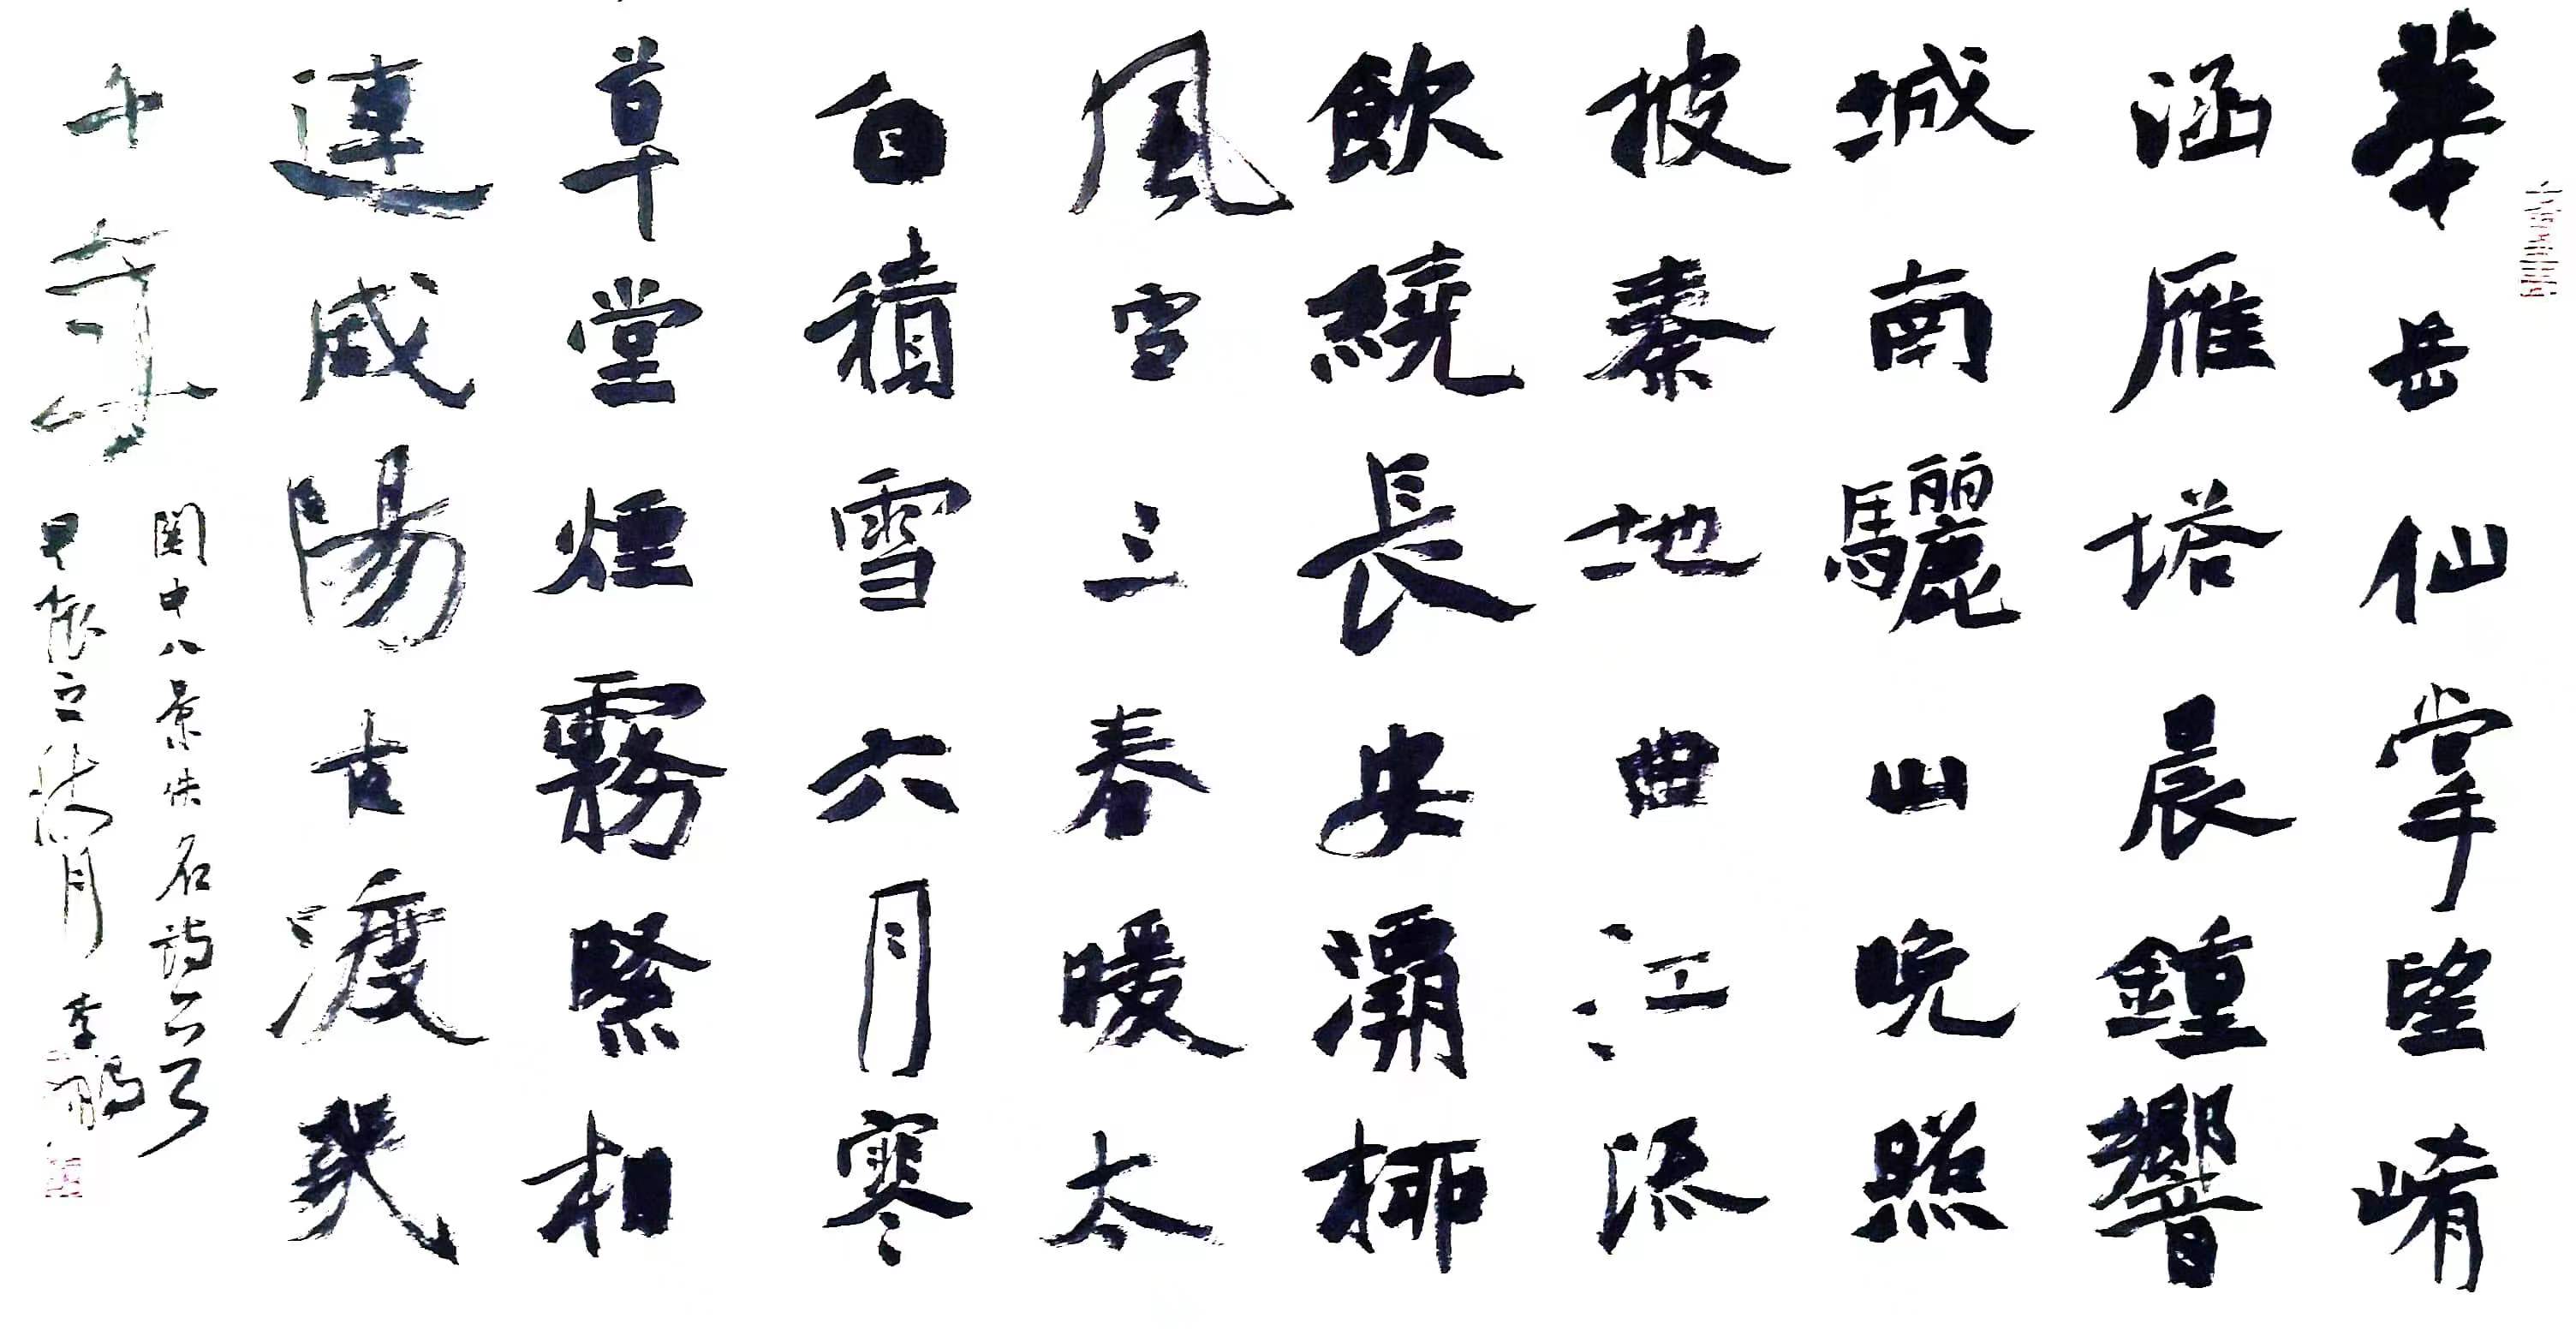 華岳仙掌望崤
涵雁塔晨鍾響
城南驪山晚照
披秦地曲江流
飲繞長安灞柳
風雪三春暖太
白積雪六月寒
草堂煙霧緊相
連咸陽古渡幾
千年
関中八景佚名詩
甲辰之秋月 李鵬